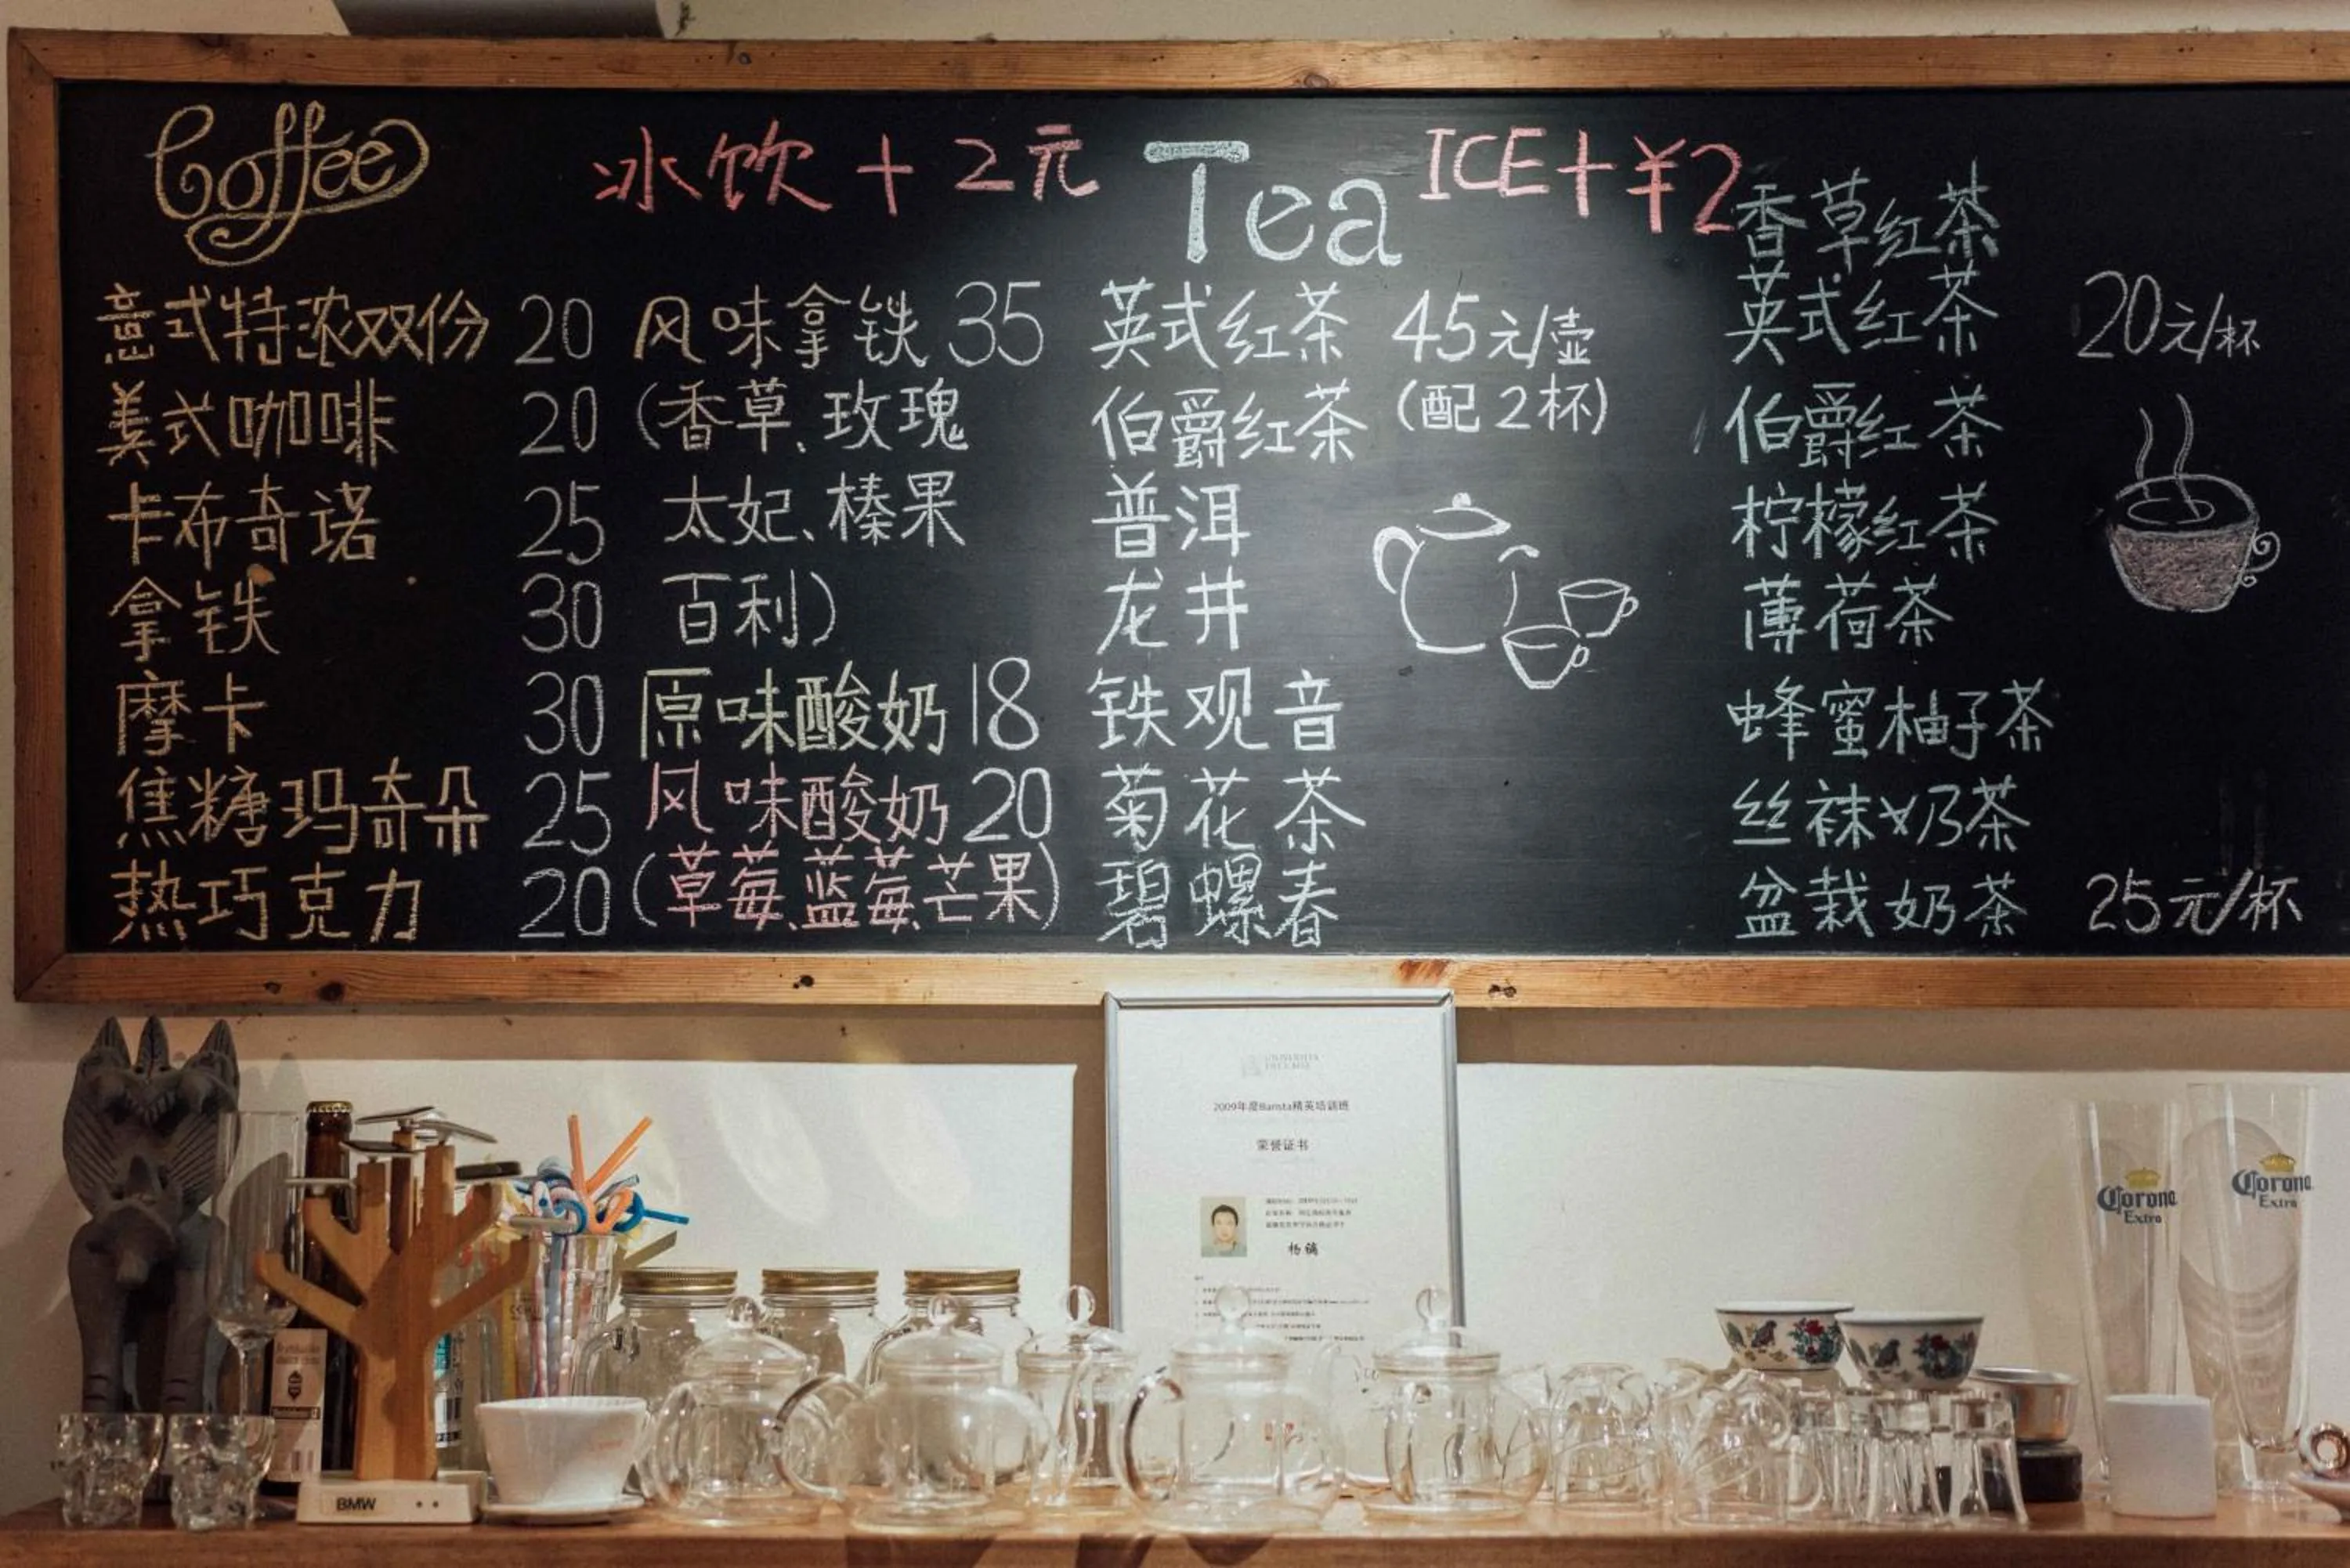 Coffee
冰饮+2元
意式特浓双份 20
美式咖啡 20
卡布奇诺 25
拿铁 30
摩卡 30
焦糖玛奇朵 25
热巧克力 20
风味拿铁 35
(香草、玫瑰
太妃、榛果
百利)
原味酸奶 18
风味酸奶 20
(草莓、蓝莓、芒果)
Tea
ICE+¥2
英式红茶 45元/壶
伯爵红茶 (配2杯)
普洱
龙井
铁观音
菊花茶
碧螺春
香草红茶
英式红茶 20元/杯
伯爵红茶
柠檬红茶
薄荷茶
蜂蜜柚子茶
丝袜奶茶
盆栽奶茶 25元/杯
2009年度Barista精英培训班
荣誉证书
Corona
Extra
Corona
Extra
BMW